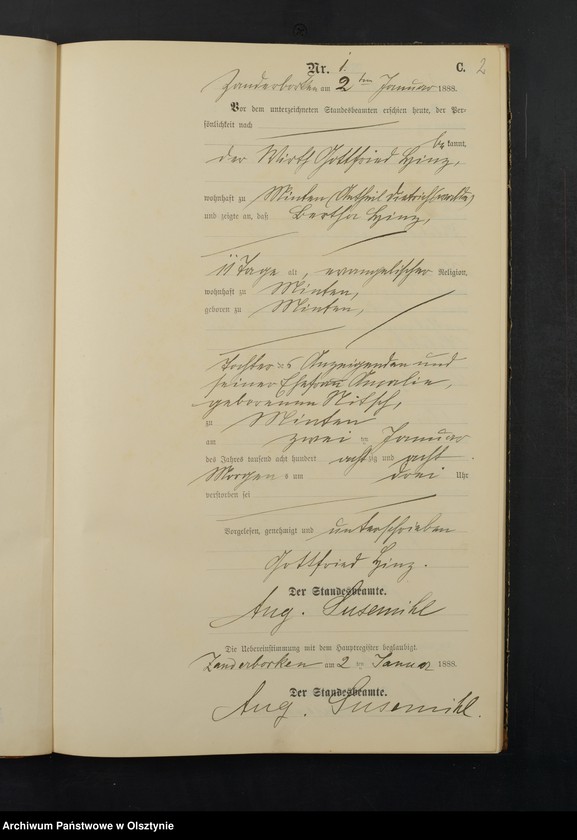 Nr. 1. C. 2
Zanderborken am 2ten Januar 1888.
Vor dem unterzeichneten Standesbeamten erschien heute, der Per-
sönlichkeit nach
bekannt,
der Wirth Gottfried Hinz,
wohnhaft zu Minten (Antheil Dietrichswalde)
und zeigte an, daß Bertha Hinz,
11 Tage alt, evangelischer Religion,
wohnhaft zu Minten,
geboren zu Minten,
Tochter des Anzeigenden und
seiner Ehefrau Amalie,
geborenen Nitsch,
zu Minten
am zwei ten Januar
des Jahres tausend acht hundert achtzig und acht
Morgens um drei Uhr
verstorben sei
Vorgelesen, genehmigt und unterschrieben
Gottfried Hinz.
Der Standesbeamte.
Aug. Susemihl
Die Uebereinstimmung mit dem Hauptregister beglaubigt.
Zanderborken am 2 ten Januar 1888.
Der Standesbeamte.
Aug. Susemihl.
Archiwum Państwowe w Olsztynie